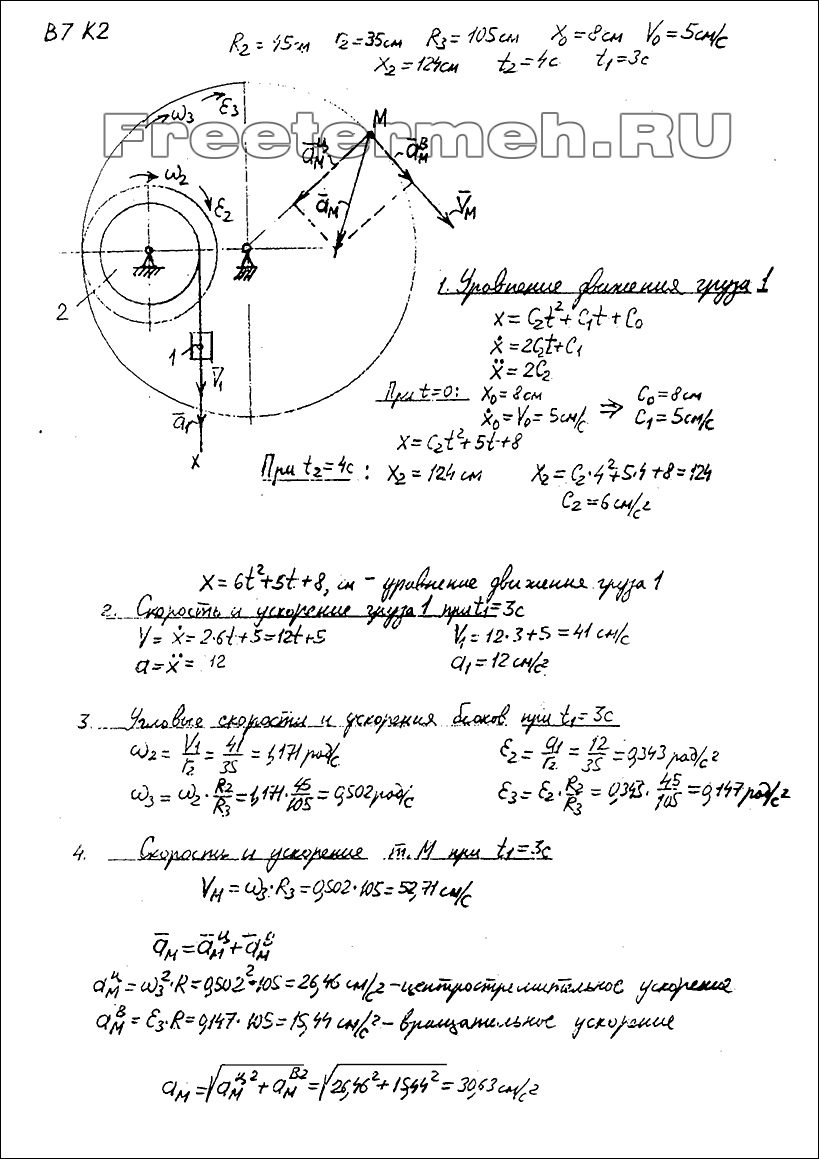 В7 К2
R₂ = 45см r₂ = 35см R₃ = 105см X₀ = 8см V₀ = 5см/с
X₂ = 124см t₂ = 4с t₁ = 3с
Freetermeh.RU
ω₃ ε₃ M
ā_M^ц ā_M^в
ω₂ ε₂ ā_M V̄_M
2
1
V̄₁
ā₁
x
1. Уравнение движения груза 1
x = C₂t² + C₁t + C₀
ẋ = 2C₂t + C₁
ẍ = 2C₂
При t=0: X₀ = 8см ⇒ C₀ = 8см
ẋ₀ = V₀ = 5см/с C₁ = 5см/с
X = C₂t² + 5t + 8
При t₂ = 4с : X₂ = 124 см X₂ = C₂·4² + 5·4 + 8 = 124
C₂ = 6 см/с²
X = 6t² + 5t + 8, см – уравнение движения груза 1
2. Скорость и ускорение груза 1 при t₁ = 3с
V = ẋ = 2·6t + 5 = 12t + 5 V₁ = 12·3 + 5 = 41 см/с
a = ẍ = 12 a₁ = 12 см/с²
3. Угловые скорости и ускорения блоков при t₁ = 3с
ω₂ = V₁/r₂ = 41/35 = 1,171 рад/с ε₂ = a₁/r₂ = 12/35 = 0,343 рад/с²
ω₃ = ω₂·R₂/R₃ = 1,171·45/105 = 0,502 рад/с ε₃ = ε₂·R₂/R₃ = 0,343·45/105 = 0,147 рад/с²
4. Скорость и ускорение т. М при t₁ = 3с
V_M = ω₃·R₃ = 0,502·105 = 52,71 см/с
ā_M = ā_M^ц + ā_M^в
a_M^ц = ω₃²·R = 0,502²·105 = 26,46 см/с² – центростремительное ускорение
a_M^в = ε₃·R = 0,147·105 = 15,44 см/с² – вращательное ускорение
a_M = √(a_M^ц² + a_M^в²) = √(26,46² + 15,44²) = 30,63 см/с²